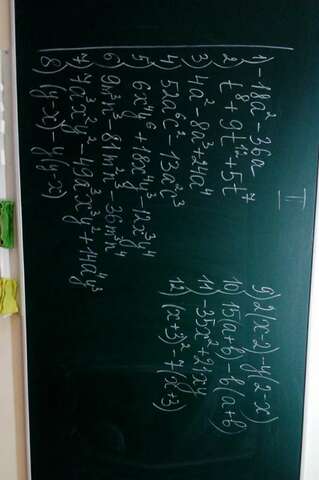 II
1) -18a² - 36a
2) t⁸ + 9t¹² + 5t⁷
3) 4a² - 8a³ + 24a⁴
4) 52a⁶c² - 13a²c³
5) 6x⁴y⁶ + 18x⁴y³ - 12x³y⁴
6) 9m³n³ - 81m²n³ - 36m⁴n⁴
7)
8) (y-x) - y(y-x)
9) 2(x-2) - y(2-x)
10) 15(a+b) - b(a+b)
11) -35x² + 21xy
12) (x+3)² - 7(x+3)